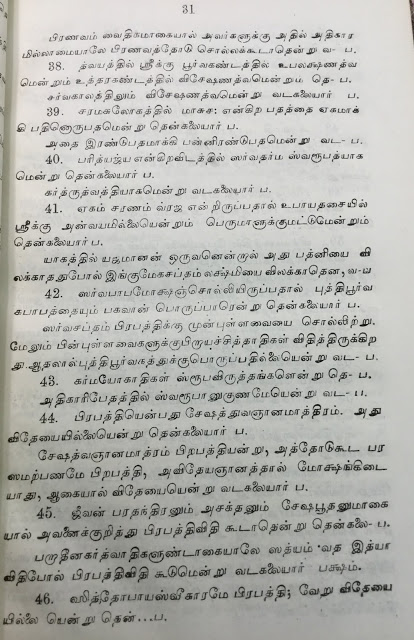 31
பிரணவம் வைதிகமாகையால் அவர்களுக்கு அதில் அதிகார
மில்லாமையாலே பிரணவத்தோடு சொல்லக்கூடாதென்று வ- ப.
38. த்வயத்தில் ஸ்ரீக்கு பூர்வகண்டத்தில் உபலக்ஷணத்வ
மென்றும் உத்தரகண்டத்தில் விசேஷணத்வமென்றும் தெ- ப.
சர்வகாலத்திலும் விசேஷணத்வமென்று வடகலையார் ப.
39. சரமசுலோகத்தில் மாசுச: என்கிற பதத்தை ஏகமாக்
கி பதினொருபதமென்று தென்கலையார் ப.
அதை இரண்டுபதமாக்கி பன்னிரண்டுபதமென்று வட- ப.
40. பரித்யஜ்ய என்கிறவிடத்தில் ஸர்வதர்ம ஸ்வரூபத்யாக
மென்று தென்கலையார் ப.
கர்த்ருத்வத்தியாகமென்று வடகலையார் ப.
41. ஏகம் சரணம் வ்ரஜ என்றிருப்பதால் உபாயதசையில்
ஸ்ரீக்கு அன்வயமில்லையென்றும் பெருமாளுக்குமட்டுமென்றும்
தென்கலையார் ப.
யாகத்தில் யஜமானன் ஒருவனென்றால் அது பத்னியை வி
லக்காததுபோல் இங்குமேகசப்தம் லக்ஷ்மியை விலக்காதென, வ-ப
42. ஸர்வபாபமோக்ஷஞ்சொல்லியிருப்பதால் புத்திபூர்வ
கபாபத்தையும் பகவான் பொருப்பாரென்று தென்கலையார் ப.
ஸர்வசப்தம் பிரபத்திக்கு முன்புள்ளவையை சொல்லிற்று.
மேலும் பின்புள்ளவைகளுக்குபிருயச்சித்தாதிகள் விதித்திருக்கிற
து. ஆதலால்புத்திபூர்வகத்துக்குபொருப்பதில்லையென்று வட- ப.
43. கர்மயோகாதிகள் ஸ்ரூபவிருத்தங்களென்று தெ- ப.
அதிகாரிபேதத்தில் ஸ்வரூபானுகுணமேயென்று வட- ப.
44. பிரபத்தியென்பது சேஷத்துவஞானமாத்திரம். அது
விதேயையில்லையென்று தென்கலையார் ப.
சேஷத்வஞானமாத்ரம் பிறபத்தியன்று, அத்தோடுகூட பர
ஸமற்பணமே பிறபத்தி, அவிதேயஞானத்தால் மோக்ஷங்கிடை
யாது, ஆகையால் விதேயையென்று வடகலையார் ப.
45. ஜீவன் பரதந்திரனும் அசக்தனும் சேஷபூதனுமாகை
யால் அவனைக்குறித்து பிரபத்திவிதி கூடாதென்று தென்கலை- ப.
பராதீனகர்த்வாதிகளுண்டாகையாலே ஸத்யம் வத இத்யா
விதிபோல் பிரபத்திவிதி கூடுமென்று வடகலையார் பக்ஷம்.
46. ஸித்தோபாயஸ்வீகாரமே பிரபத்தி; வேறு விதேயை
யில்லை யென்று தென்...ப.